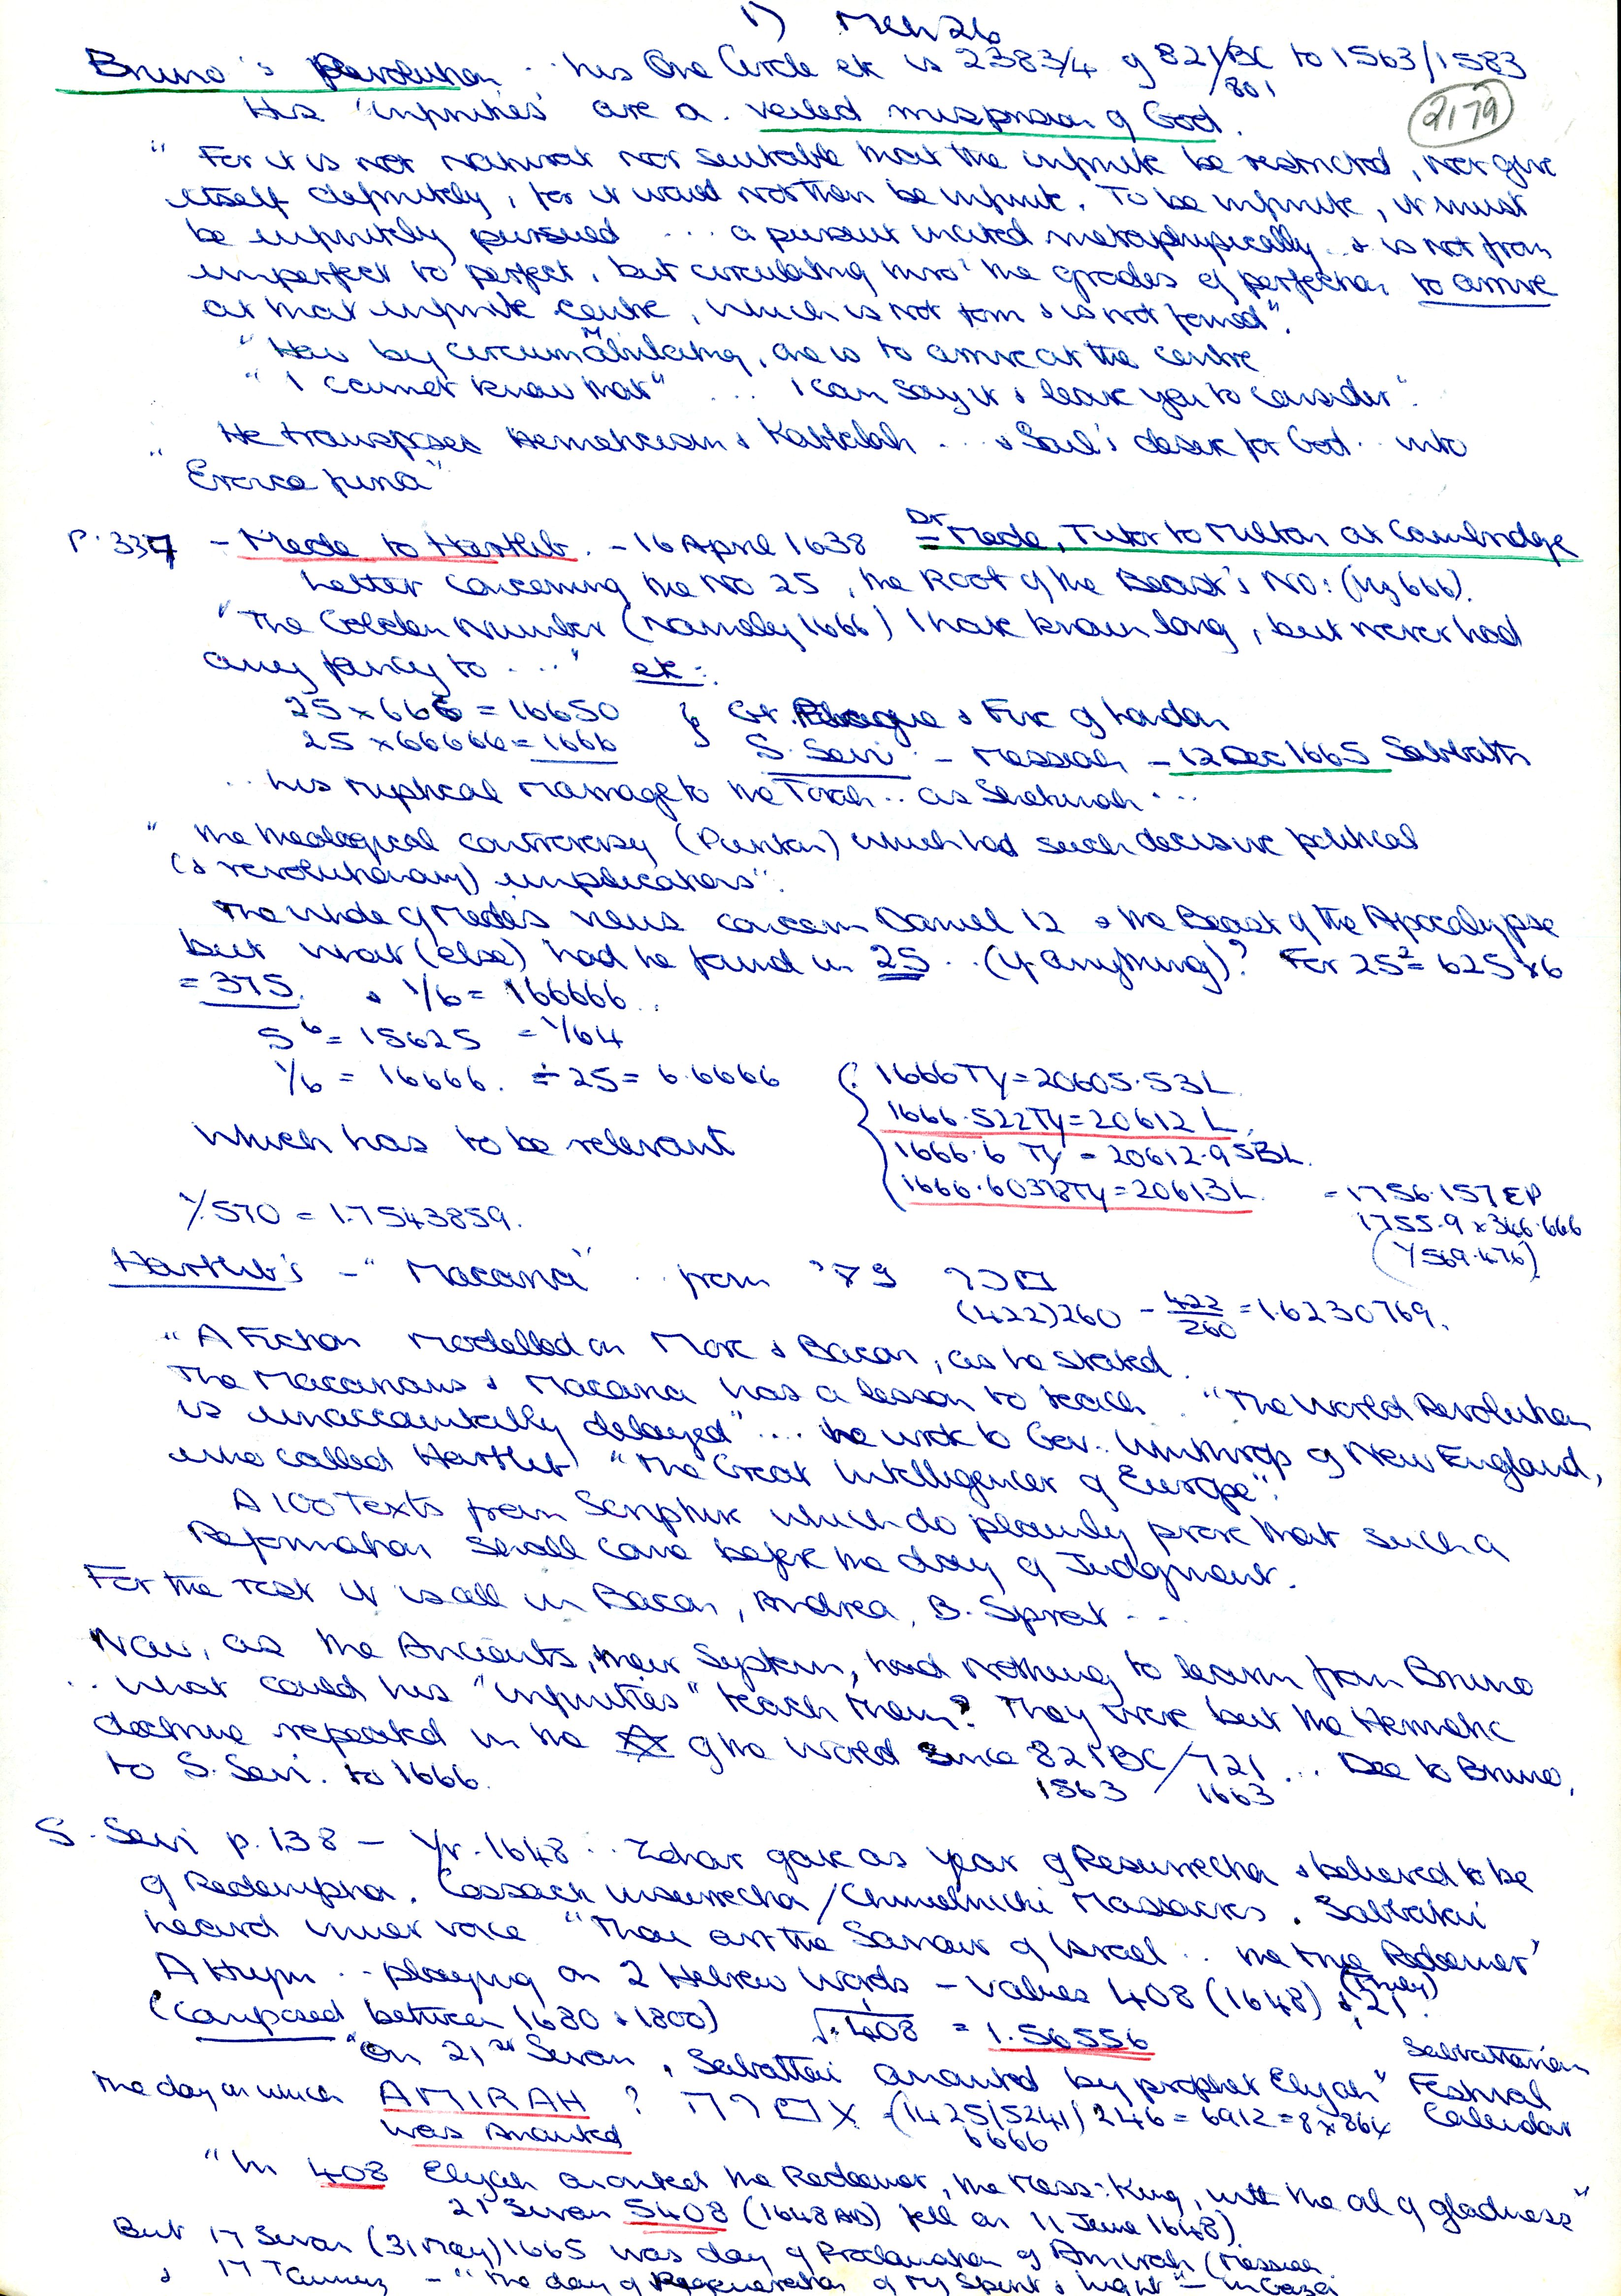 1) Mch 26
Bruno's Revolution .. his One Circle etc is 2383/4 of 821/BC to 1563/1583
/801
His 'infinities' are a veiled misprision of God.
2179
"For it is not natural nor suitable that the infinite be restricted, nor give
itself definitely, for it would not then be infinite. To be infinite, it must
be infinitely pursued ... a pursuit incited metaphysically .. & is not from
imperfect to perfect, but circulating thro' the grades of perfection to arrive
at that infinite centre, which is not form & is not formed".
"How by circumambulating, one is to arrive at the centre
"I cannot know that" ... I can say it & leave you to consider".
"He transposes Hermeticism & Kabbalah ... & Soul's desire for God .. into
Eroica furia"
P. 337 - Mede to Hartlib. - 16 April 1638 = Dr Mede, Tutor to Milton at Cambridge
Letter concerning the No 25, the Root of the Beast's No: (by 666).
"The Golden Number (namely 1666) I have known long, but never had
any fancy to ...." etc:
25 x 666 = 16650 } Gt. Plague & Fire of London
25 x 66666 = 1666 } S. Sevi - Messiah - 12 Dec 1665 Sabbath
.. his mystical marriage to the Torah .. as Shekinah ...
"the theological controversy (Puritan) which had such decisive political
(& revolutionary) implications".
The whole of Mede's views concern Daniel 12 & the Beast of the Apocalypse
but what (else) had he found in 25 .. (if anything)? For 25² = 625 x 6
= 375. & 1/6 = 166666..
5⁶ = 15625 = 1/64
1/6 = 16666. ÷ 25 = 6.6666 (: 1666 TY = 20605.53 L.
1666.522 TY = 20612 L.
Which has to be relevant 1666.6 TY = 20612.953 L.
(1666.60378 TY = 20613 L. = 1756.157 EP
1/570 = 1.7543859. 1755.9 x 346.666
(1/569.476)
Hartlib's - "Macaria" .. from
(422) 260 - 422/260 = 1.6230769.
"A Fiction modelled on More & Bacon, as he stated.
The Macarians & Macaria has a lesson to teach. "The World Revolution
is unaccountably delayed" ... he wrote to Gov. Winthrop of New England,
who called Hartlib "The Great Intelligencer of Europe".
A 100 Texts from Scripture which do plainly prove that such a
Reformation shall come before the day of Judgment.
For the rest it is all in Bacon, Andrea, B. Sprat ...
Now, as the Ancients, their System, had nothing to learn from Bruno
.. what could his "infinities" teach them? They were but the Hermetic
doctrine repeated in the ✡ of the World since 821 BC/721 ... Dee to Bruno,
1563 / 1663
to S. Sevi. to 1666.
S. Sevi p. 138 - Yr. 1648 .. Zohar gave as year of Resurrection & believed to be
of Redemption. Cossack insurrection/Chmielnicki Massacres. Sabbatai
heard inner voice "Thou art the Saviour of Israel .. the true Redeemer"
A Hymn .. playing on 2 Hebrew words - values 408 (1648) & 21.
(Composed between 1680 & 1800) √.408 = 1.56556
"On 21st Sivan, Sabbattai anointed by prophet Elijah" Sabbattarian
Festival
Calendar
The day on which AMIRAH ? (1425/5241) 246 = 6912 = 8 x 864
was anointed 6666
"In 408 Elijah anointed the Redeemer, the Mess: King, with the oil of gladness"
21 Sivan 5408 (1648 AD) fell on 11 June 1648)
But 17 Sivan (31 May) 1665 was day of Proclamation of Amirah (Messiah
& 17 Tammuz - "the day of Regeneration of my Spirit & Light" - in Gaza